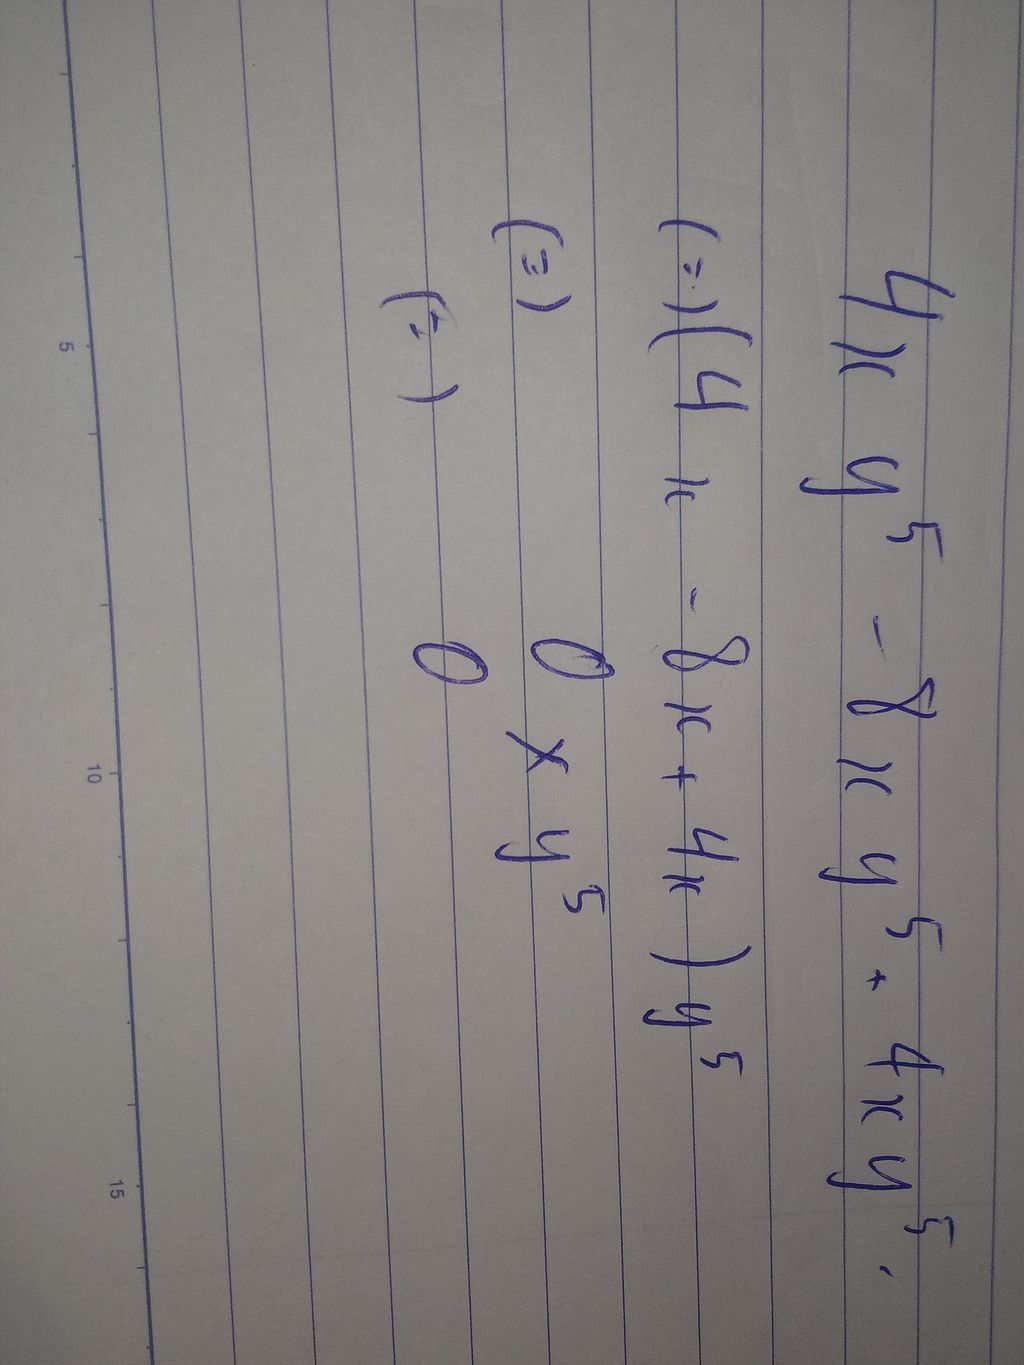 4x y⁵ - 8x y⁵ + 4x y⁵.
(=) (4x - 8x + 4x) y⁵
(=) 0 x y⁵
(=) 0
5 10 15